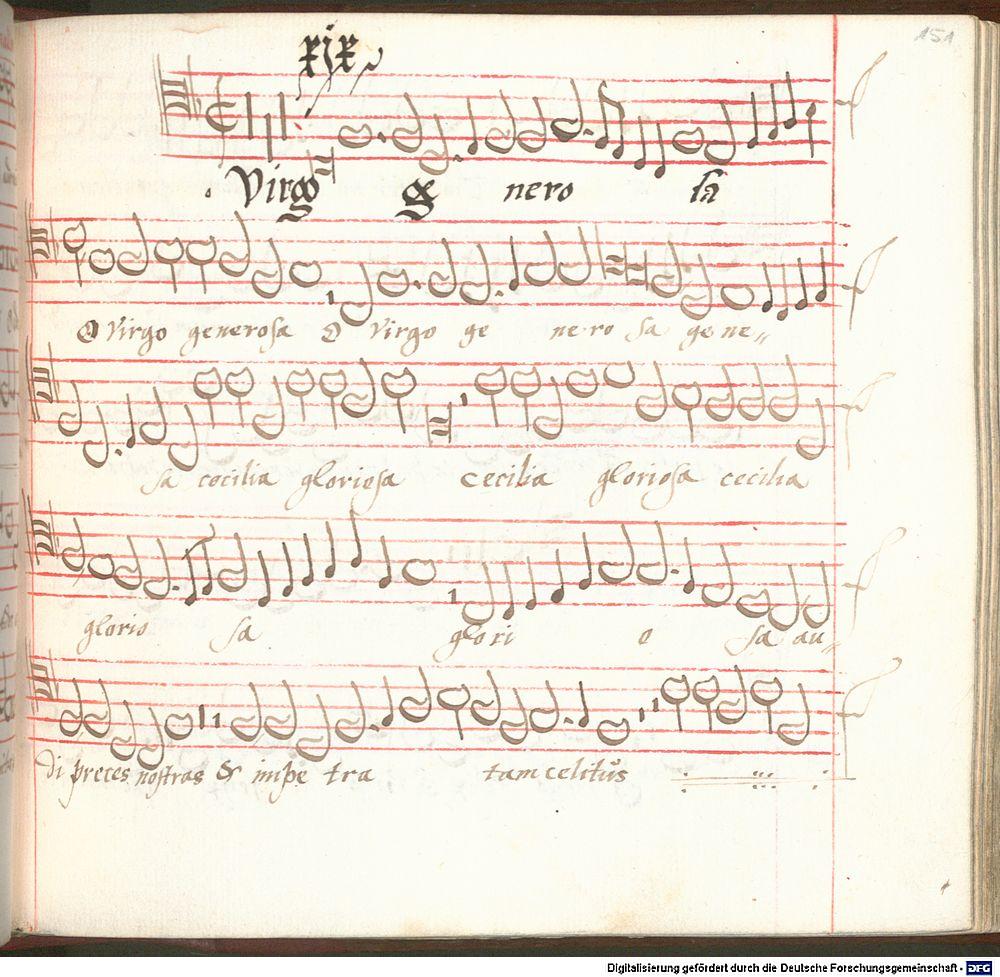 151
xix
Virgo ge nero sa
O Virgo generosa O Virgo ge ne ro sa ge ne„
sa cocilia gloriosa cecilia gloriosa cecilia
glorio sa glori o sa au„
di preces nostras & inpe tra tam celitus
Digitalisierung gefördert durch die Deutsche Forschungsgemeinschaft - DFG